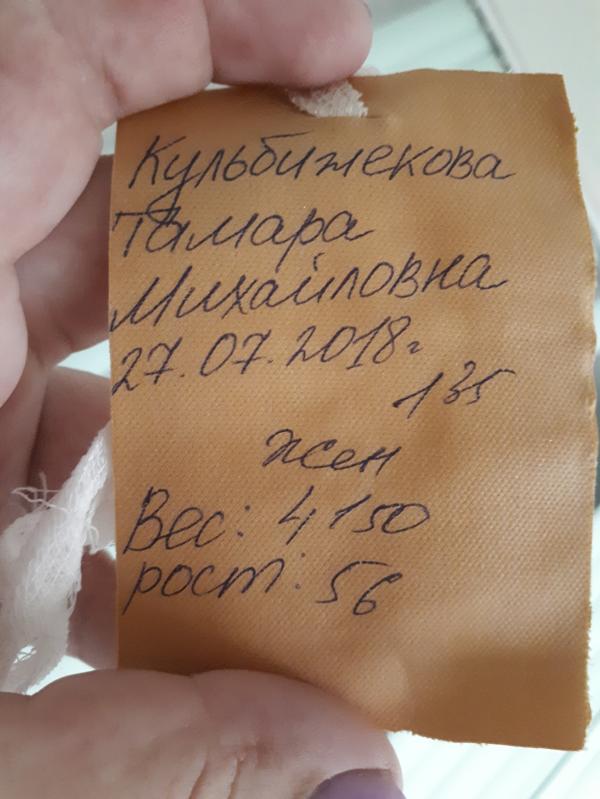 Кульбижекова
Тамара
Михайловна
27.07.2018г
1 35
жен
Вес: 4150
рост: 56